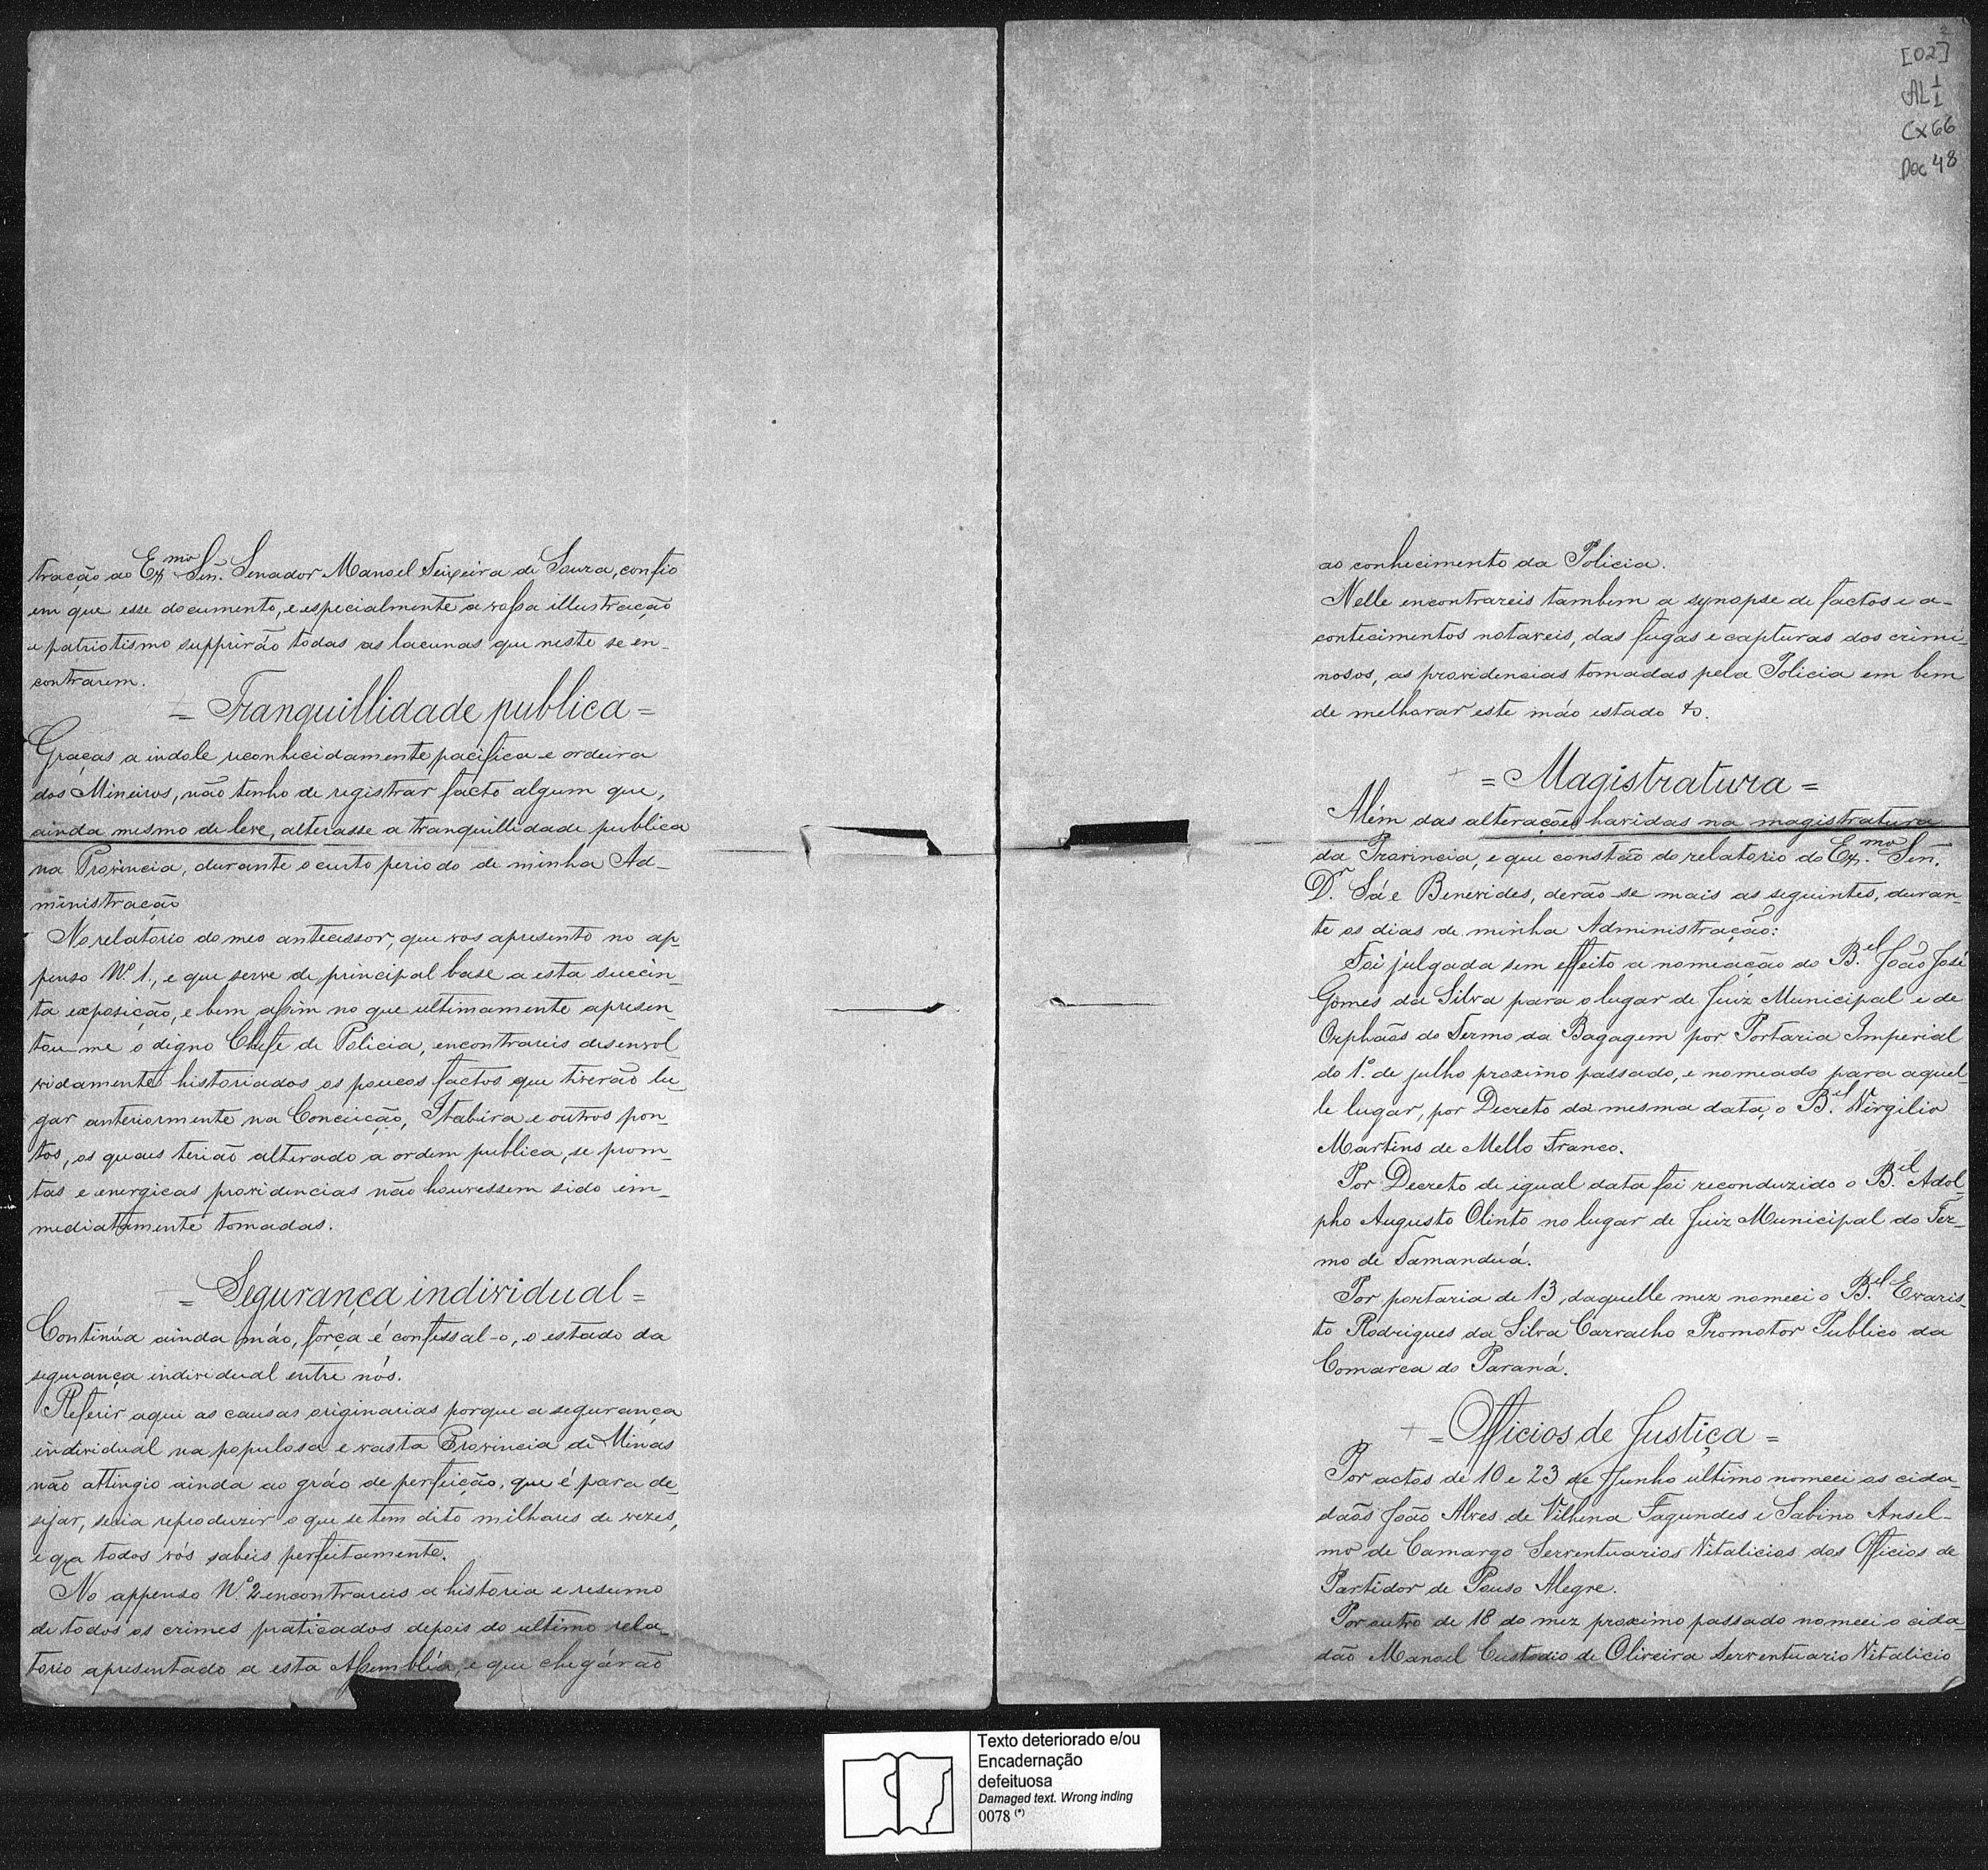 tração do Ex.mo Sen.r Senador Manoel Teixeira de Souza, confio
em que esse documento, e especialmente a vossa illustração
e patriotismo supprirão todas as lacunas que neste se en-
contrarem.
= Tranquillidade publica =
Graças a indole reconhecidamente pacifica e ordeira
dos Mineiros, não tenho de registrar facto algum que,
ainda mesmo de leve, alterasse a tranquillidade publica
na Provincia, durante o curto periodo de minha Ad-
ministração
No relatorio do meo antecessor, que vos apresento no ap-
penso Nº 1., e que serve de principal base a esta succin-
ta exposição, e bem assim no que ultimamente apresen-
tou-me o digno Chefe de Policia, encontrareis desenvol-
vidamente historiados os poucos factos que tiverão lu-
gar anteriormente na Conceição, Itabira e outros pon-
tos, os quaes terião alterado a ordem publica, se prom-
tas e energicas providencias não houvessem sido im-
mediatamente tomadas.
= Segurança individual =
Continúa ainda máo, força é confessal-o, o estado da
segurança individual entre nós.
Referir aqui as causas originarias porque a segurança
individual na populosa e vasta Provincia de Minas
não attingio ainda ao gráo de perfeição, que é para de-
sejar, seria reproduzir o que se tem dito milhares de vezes,
e que todos vós sabeis perfeitamente.
No appenso Nº 2 encontrareis a historia e resumo
de todos os crimes praticados depois do ultimo rela-
torio apresentado a esta Assembléa, e que chegárão
2
[02]
AL 1/1
Cx 66
Doc 48
ao conhecimento da Policia.
Nelle encontrareis tambem a synopse de factos e a-
contecimentos notaveis, das fugas e capturas dos crimi-
nosos, as providencias tomadas pela Policia em bem
de melhorar este máo estado &.
= Magistratura =
Além das alterações havidas na magistratura
da Provincia, e que constão do relatorio do Ex.mo Sen.r
D.r Sá e Benevides, derão-se mais as seguintes, duran-
te os dias de minha Administração:
Foi julgada sem effeito a nomeação do B.el João José
Gomes da Silva para o lugar de Juiz Municipal e de
Orphaõs do Termo da Bagagem por Portaria Imperial
do 1.º de julho proximo passado, e nomeado para aquel-
le lugar, por Decreto da mesma data, o B.el Virgilio
Martins de Mello Franco.
Por Decreto de igual data foi reconduzido o B.el Adol-
pho Augusto Olinto no lugar de Juiz Municipal do Ter-
mo de Tamanduá.
Por portaria de 13, daquelle mez nomeei o B.el Evaris-
to Rodrigues da Silva Carvalho Promotor Publico da
Comarca do Paraná.
= Officios de Justiça =
Por actos de 10 e 23 de Junho ultimo nomeei os cida-
dãos João Alves de Vilhena Fagundes e Sabino Ansel-
mo de Camargo Serventuarios Vitalicios dos Officios de
Partidor de Pouso Alegre.
Por outro de 18 do mez proximo passado nomeei o cida-
dão Manoel Custodio de Oliveira Serventuario Vitalicio
Texto deteriorado e/ou
Encadernação
defeituosa
Damaged text. Wrong inding
0078 (*)